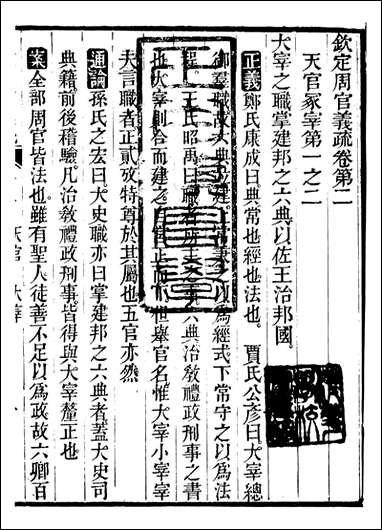 欽定周官義疏卷第二
天官冢宰第一之二
大宰之職掌建邦之六典以佐王治邦國
正義鄭氏康成曰典常也經也法也 賈氏公彥曰大宰總
御羣職故六典 建 以爲經式下常守之以爲法
王氏昭禹曰 六典治敎禮政刑事之書
也大宰則合而建之 官名惟大宰小宰宰
夫言職者正貳攷特尊於其屬也五官亦然
通論孫氏之宏曰大史職亦曰掌建邦之六典者蓋大史司
典籍前後稽驗凡治敎禮政刑事皆得與大宰釐正也
案全部周官皆法也雖有聖人徒善不足以爲政故六卿百
天官 大宰